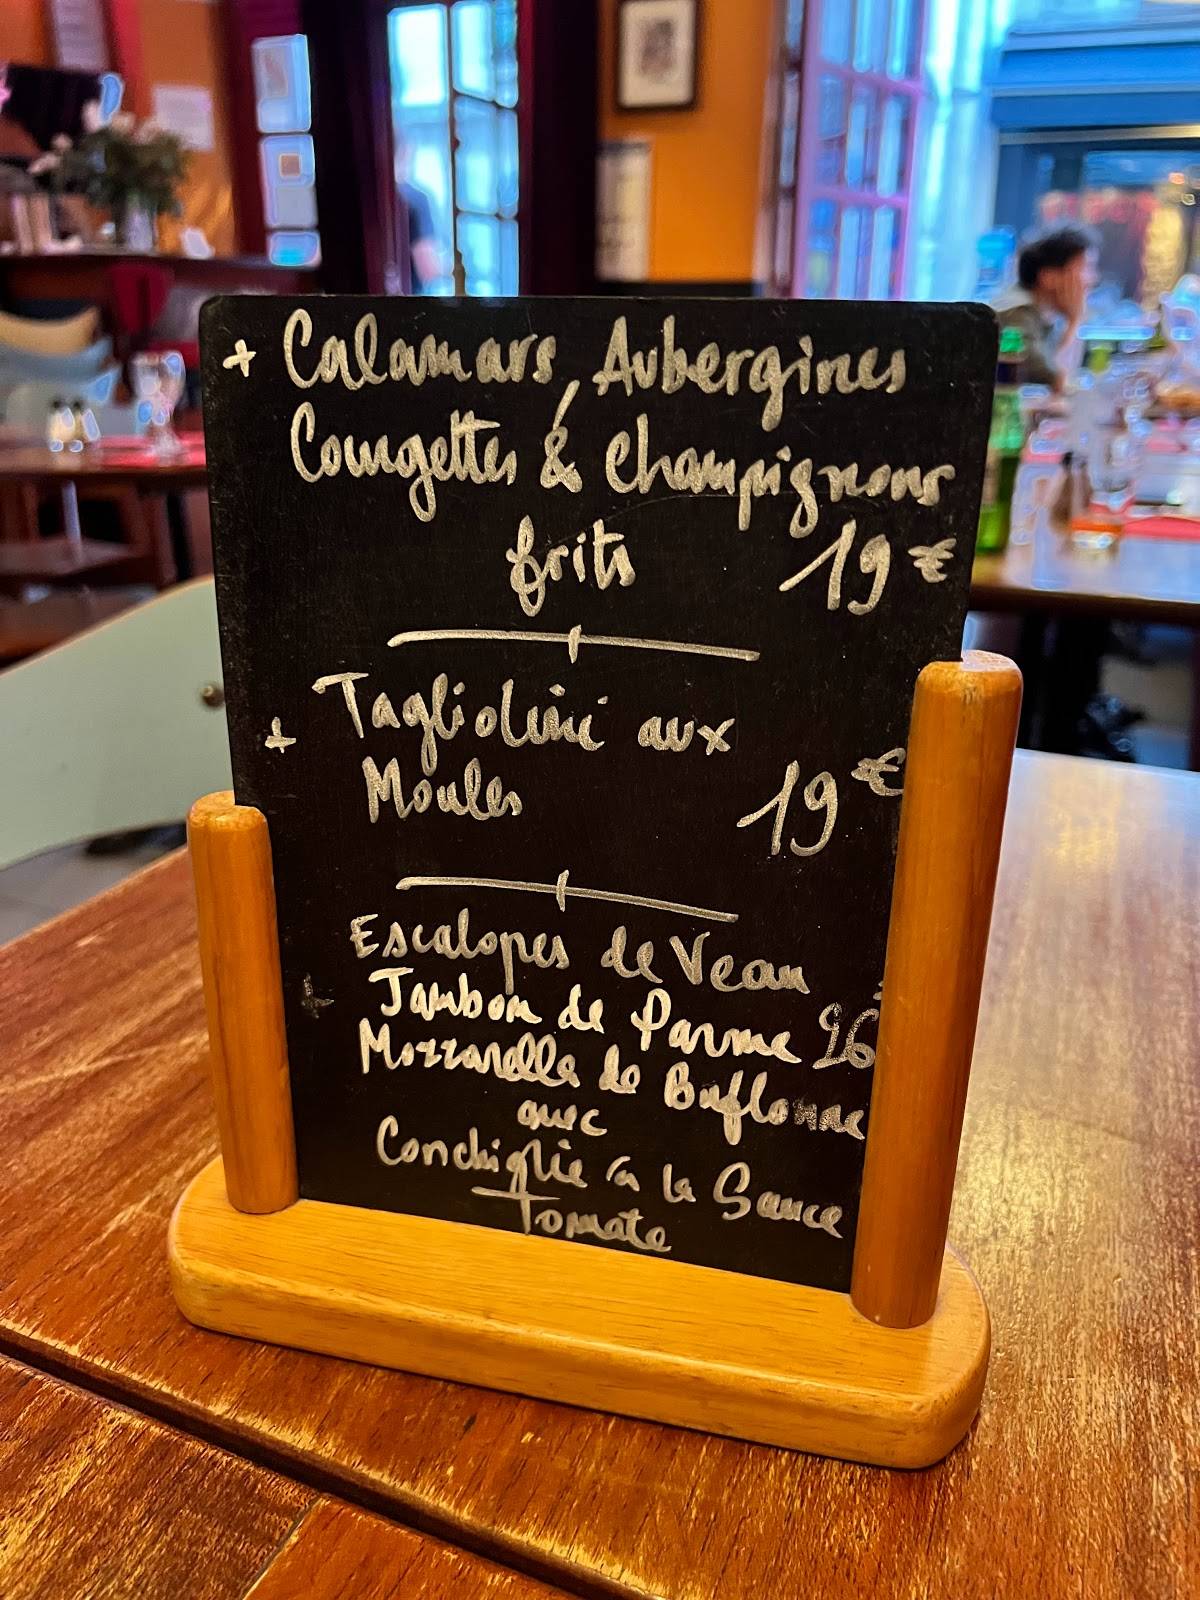 + Calamars, Aubergines
Courgettes & Champignons
frits 19 €
+ Tagliolini aux
Moules 19 €
+ Escalopes de Veau
Jambon de Parme 26
Mozzarella de Bufflonne
avec
Conchiglie à la Sauce
Tomate